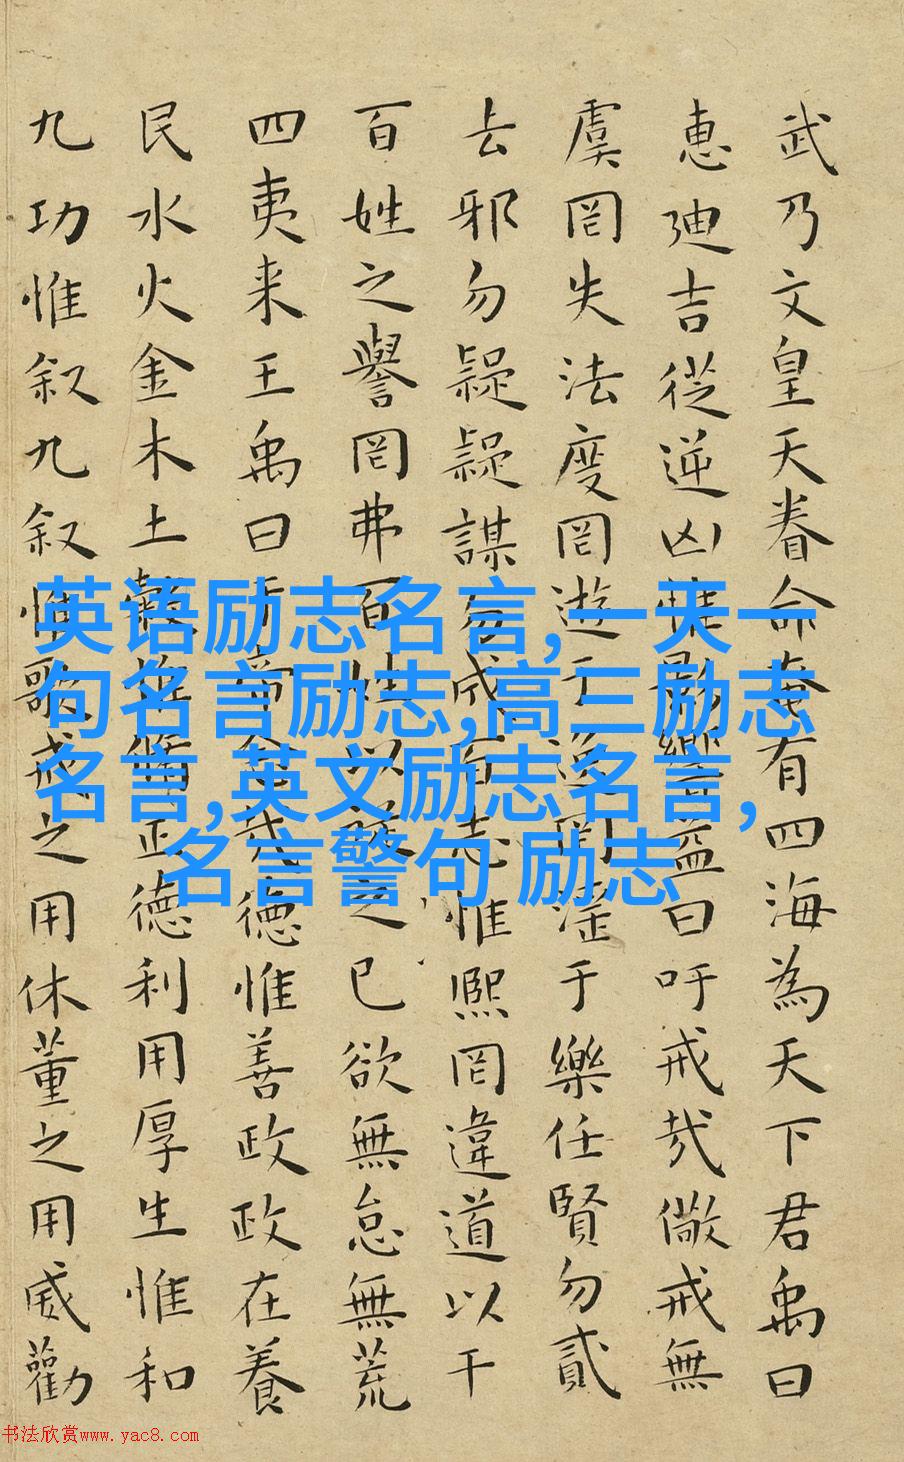 武乃文皇天眷命奄有四海為天下君禹曰
惠廸吉從逆凶惟影響益曰吁戒哉儆戒無
虞罔失法度罔遊于逸罔淫于樂任賢勿貳
去邪勿疑疑謀勿成百志惟熈罔違道以干
百姓之譽罔弗百姓以之已欲無怠無荒
四夷来王禹曰帝念哉德惟善政政在養
民水火金木土穀惟脩正德利用厚生惟和
九功惟叙九叙惟歌戒之用休董之用威勸
英语励志名言,一天一
句名言励志,高三励志
名言,英文励志名言,
名言警句 励志
书法欣赏www.yac8.com